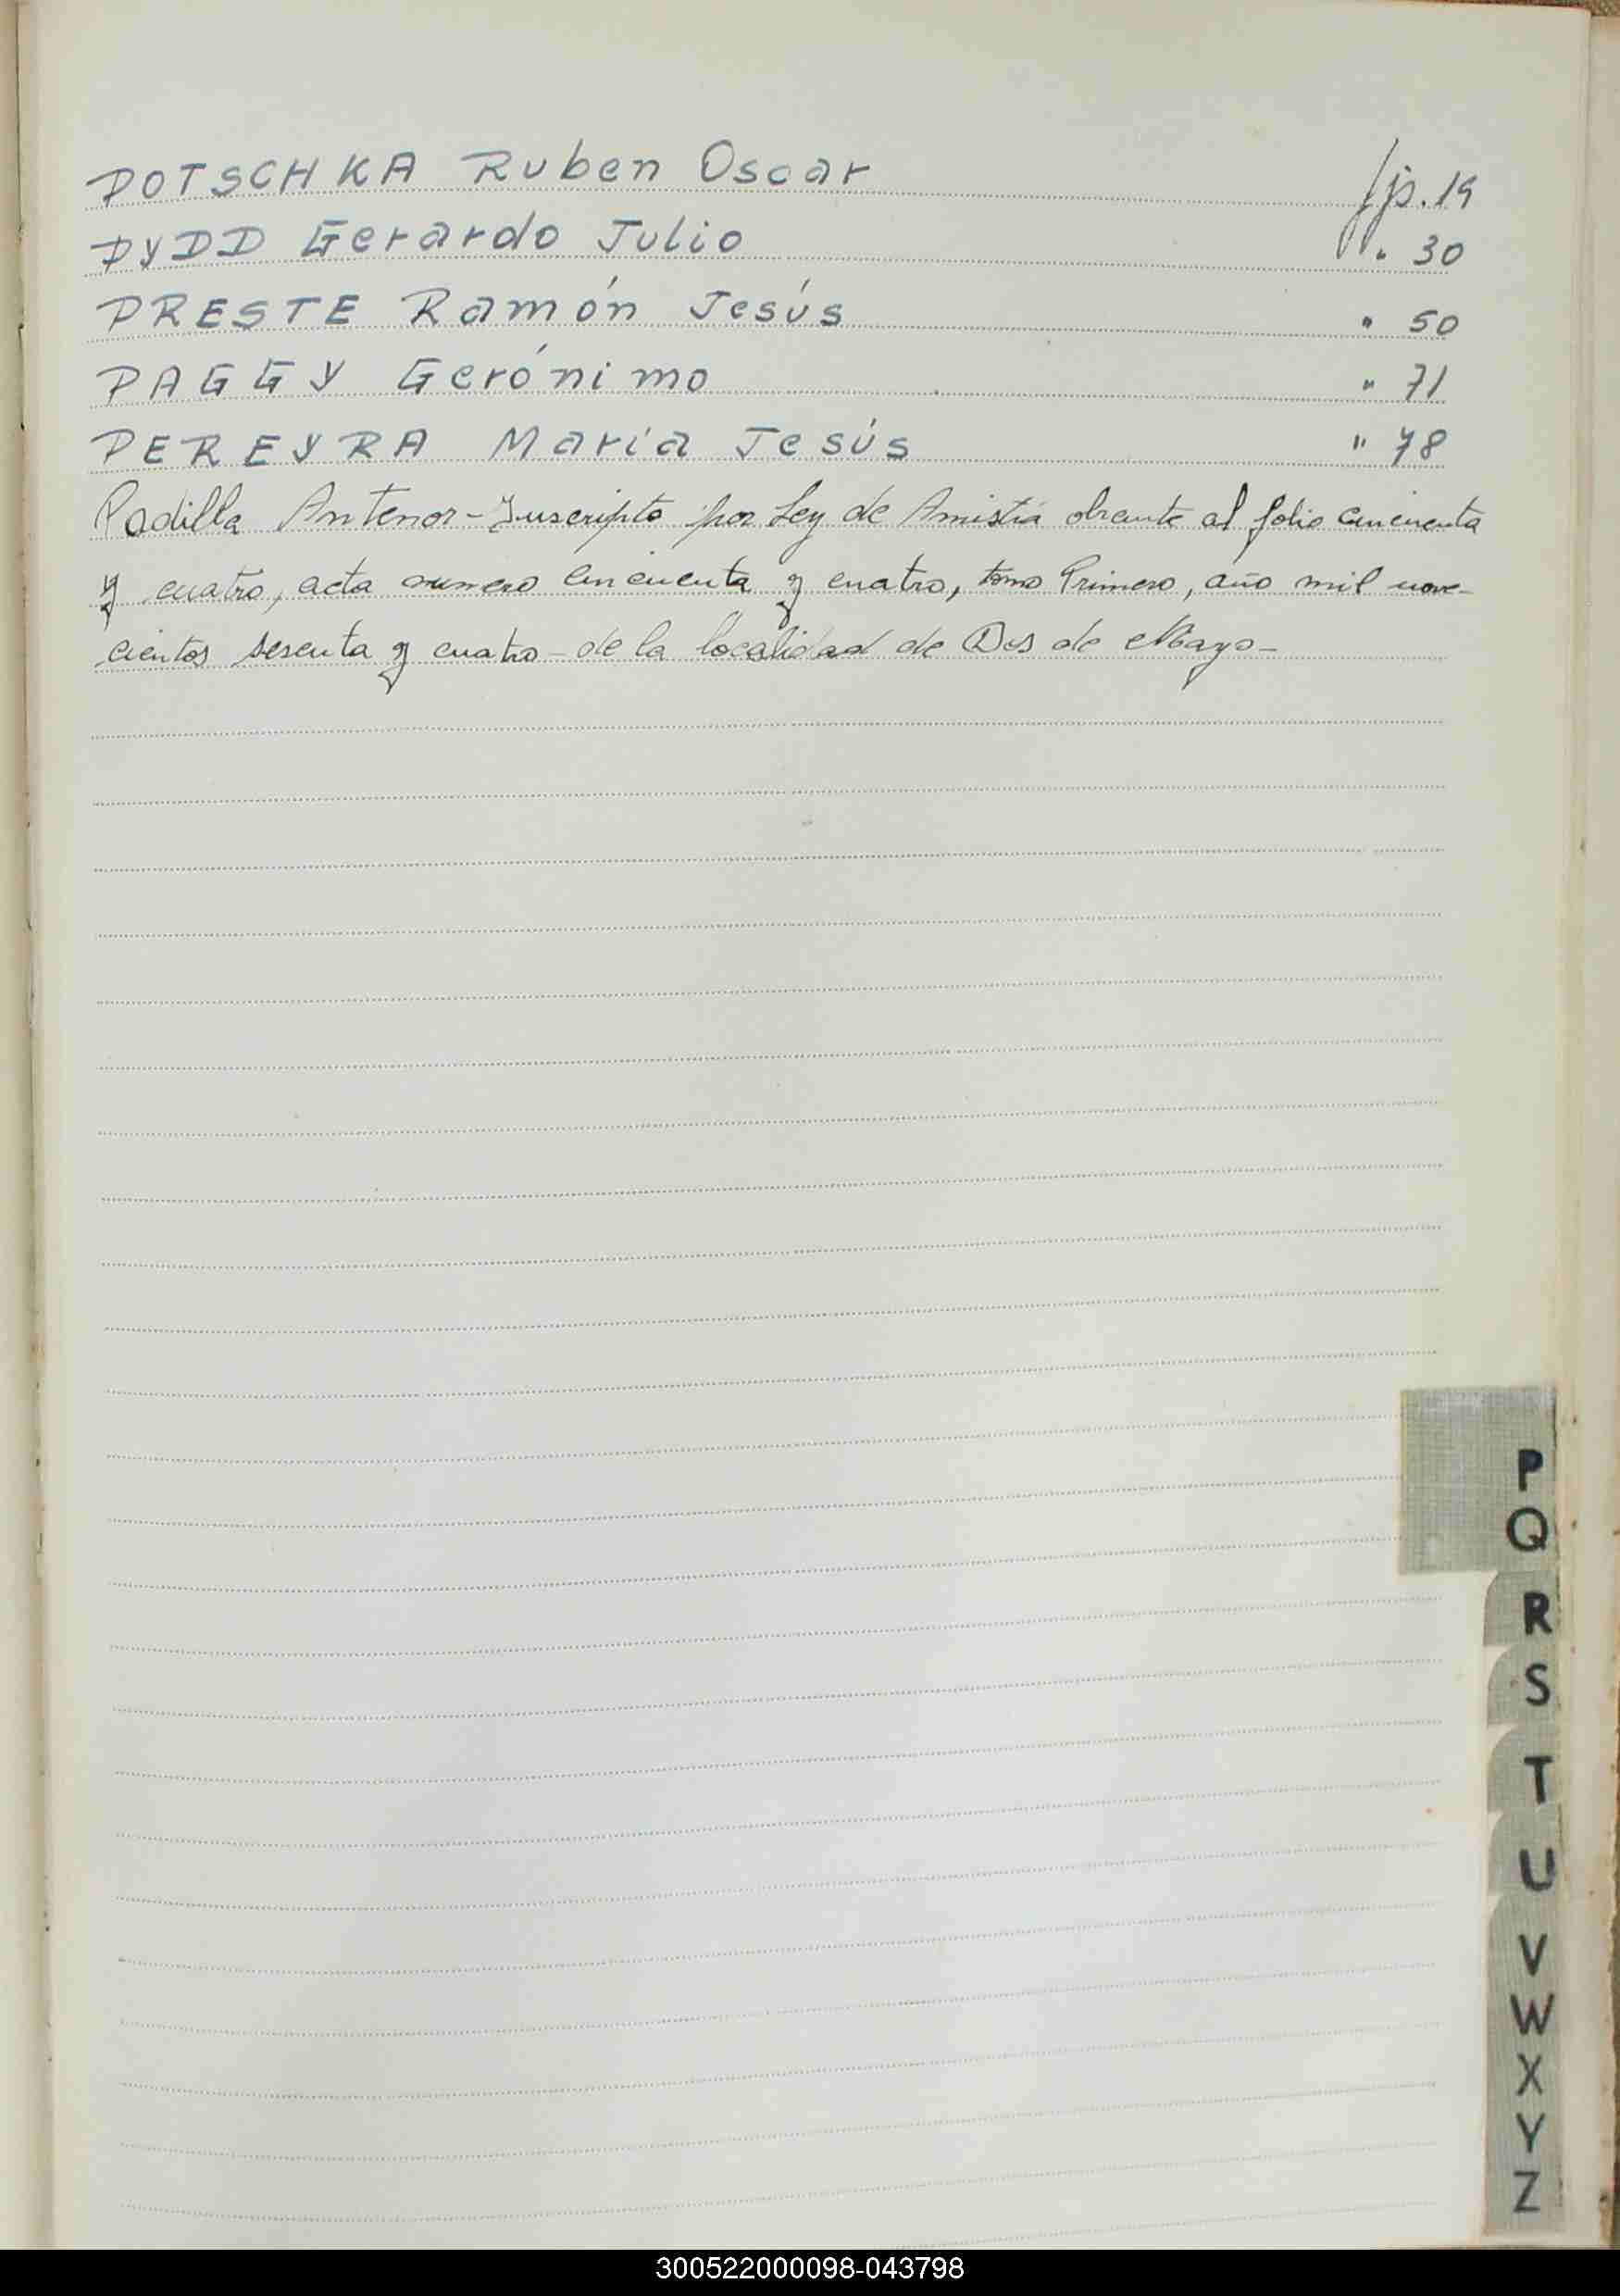 POTSCHKA Ruben Oscar fjs. 19
PYDD Gerardo Julio " 30
PRESTE Ramón Jesús " 50
PAGGY Gerónimo " 71
PEREYRA María Jesús " 78
Padilla Antenor - Inscripto por Ley de Amistia obrante al folio cincuenta
y cuatro, acta numero cincuenta y cuatro, tomo Primero, año mil nove-
cientos sesenta y cuatro - de la localidad de Dos de Mayo -
P
Q
R
S
T
U
V
W
X
Y
Z
300522000098-043798